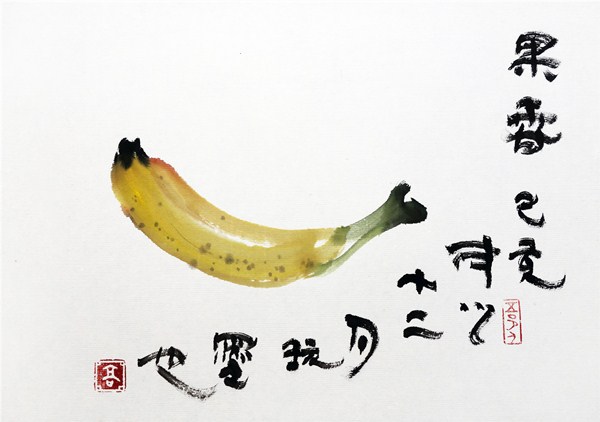 果香己亥
十二
月玩墨也